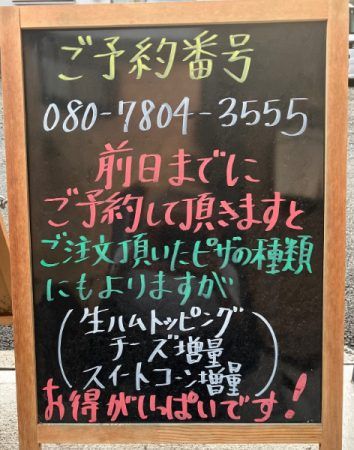 ご予約番号
080-7804-3555
前日までに
ご予約して頂きますと
ご注文頂いたピザの種類
にもよりますが
(生ハムトッピング
チーズ増量
スイートコーン増量)
お得がいっぱいです!